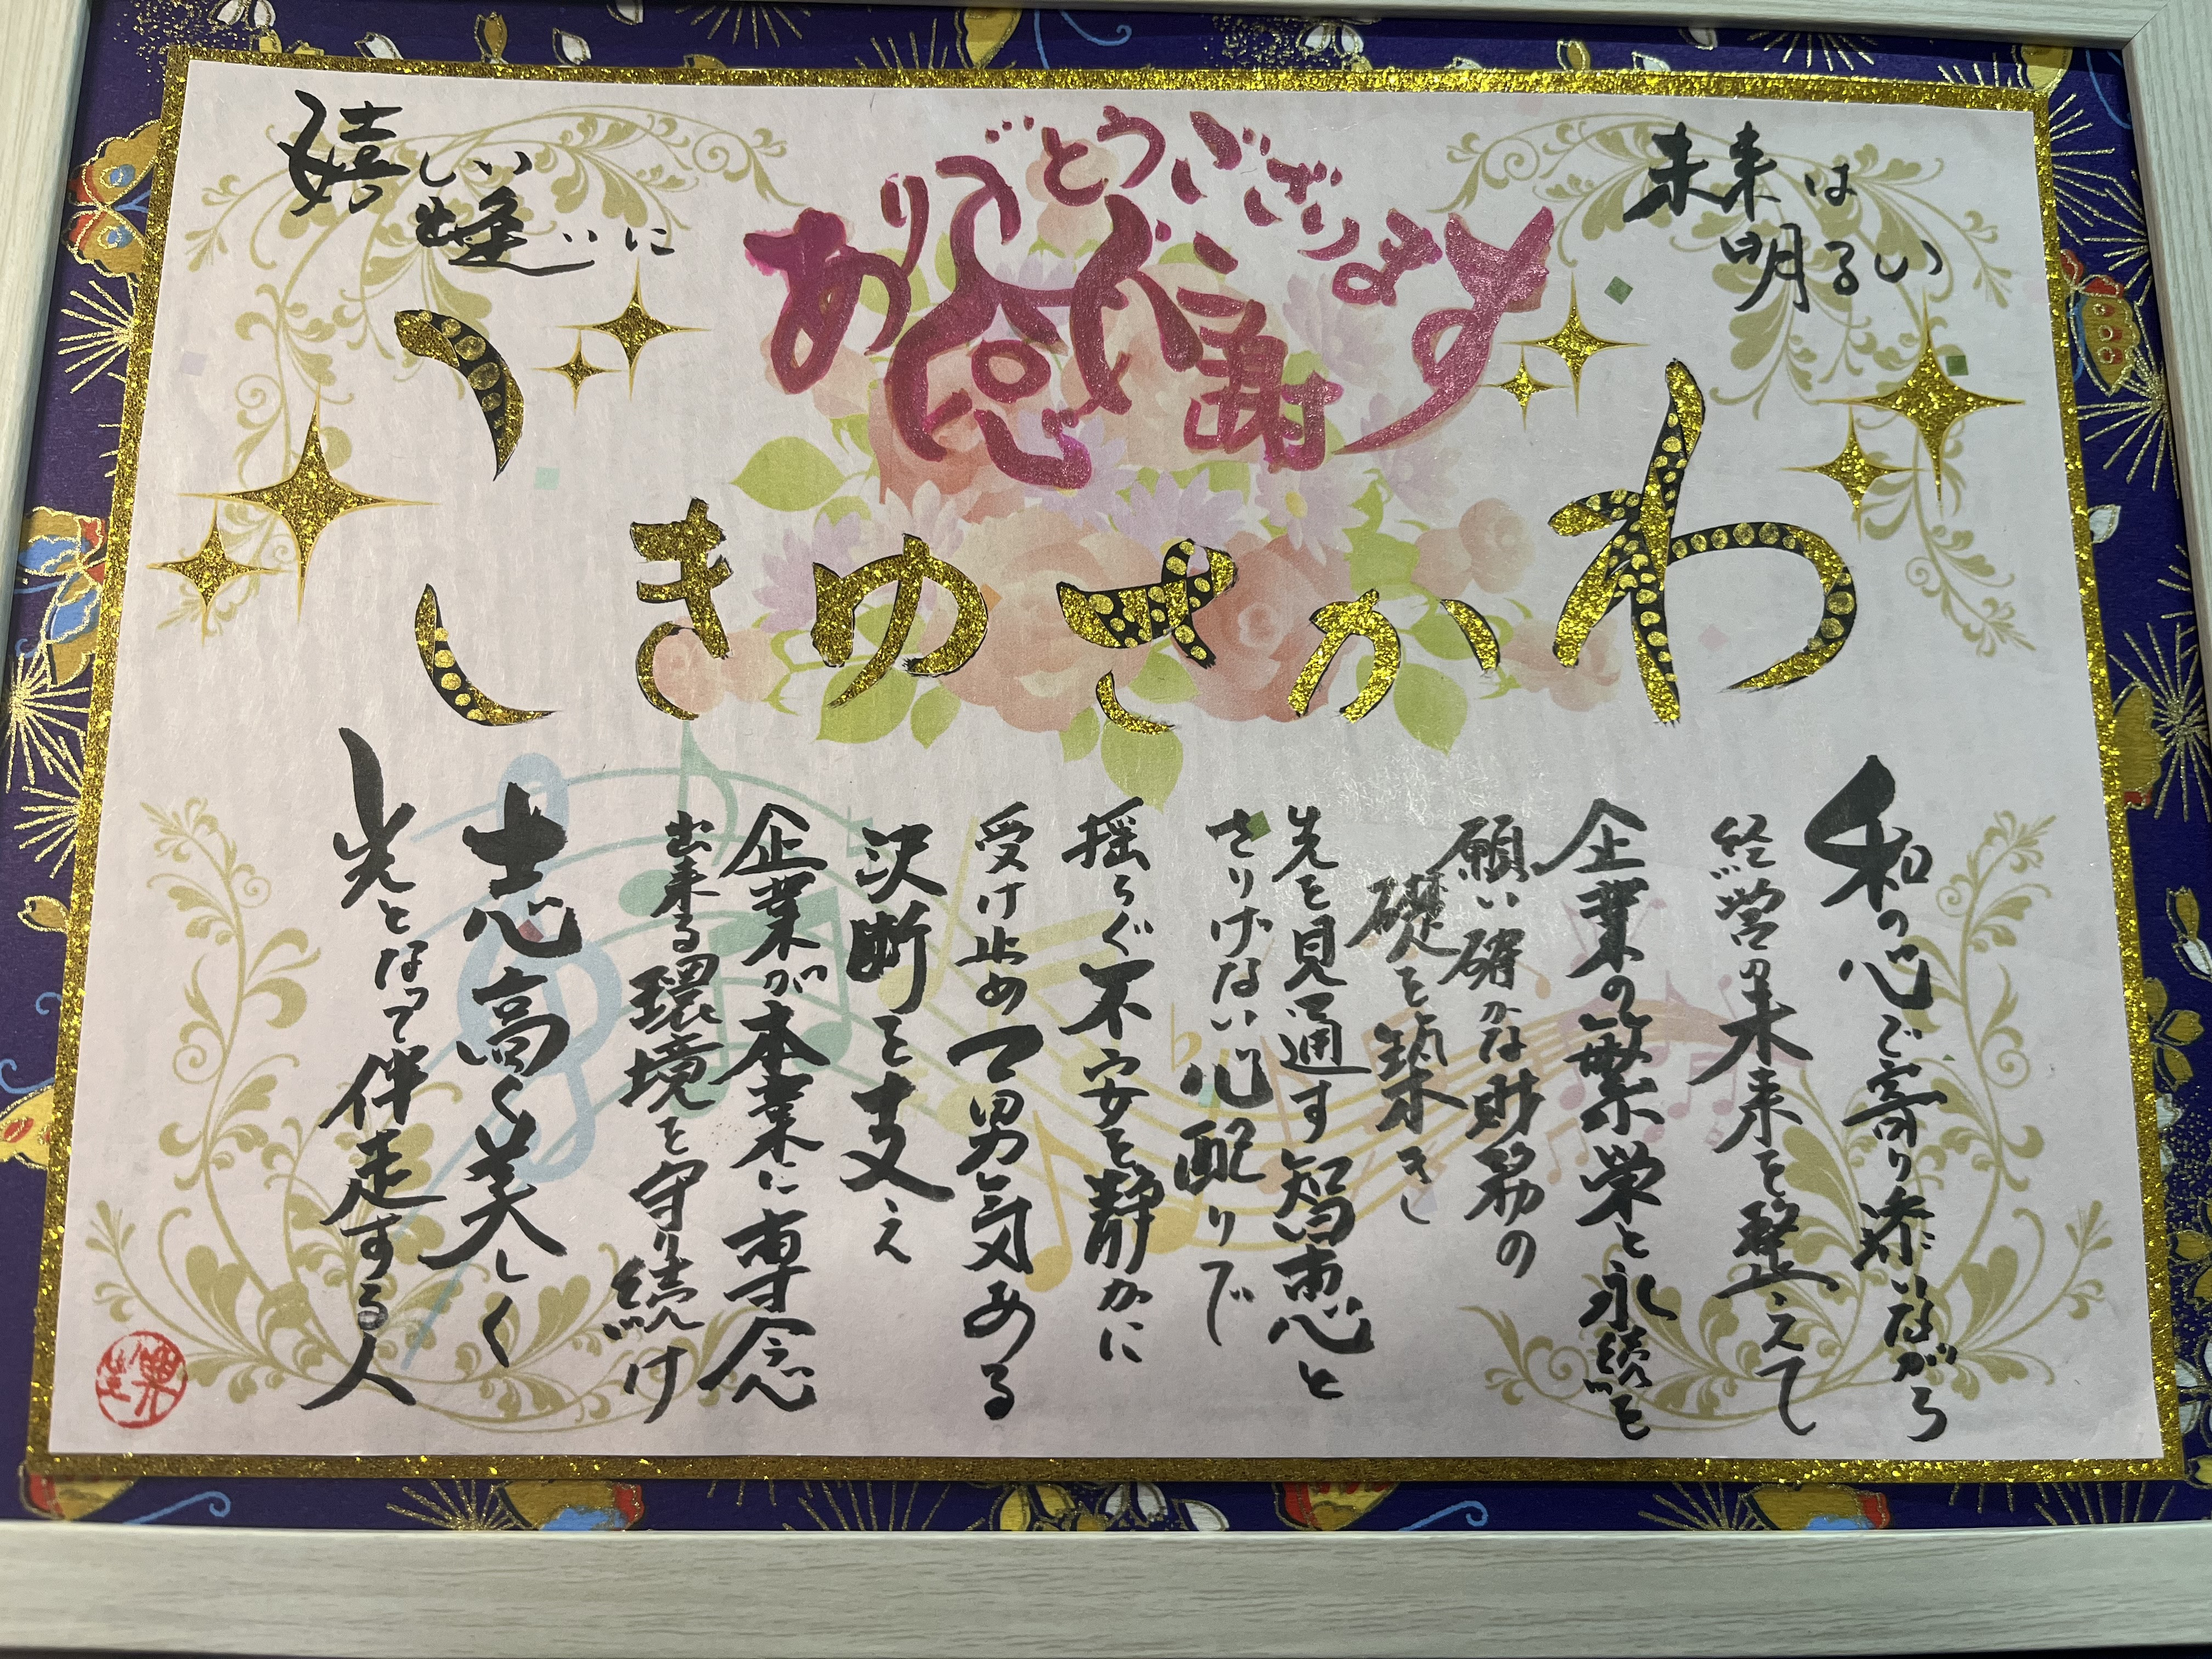 未来は
明るい
ありがとうございます
感謝
嬉しい
出逢いに
わかさゆきこ
和の心で寄り添いながら
経営の未来を整えて
企業の繁栄と永続を
願い確かな財務の
礎を築き
先を見通す智恵と
さりげない心配りで
揺らぐ不安を静かに
受け止め男気ある
決断を支え
企業が本業に専念
出来る環境を守り続け
志高く美しく
光となって伴走する人